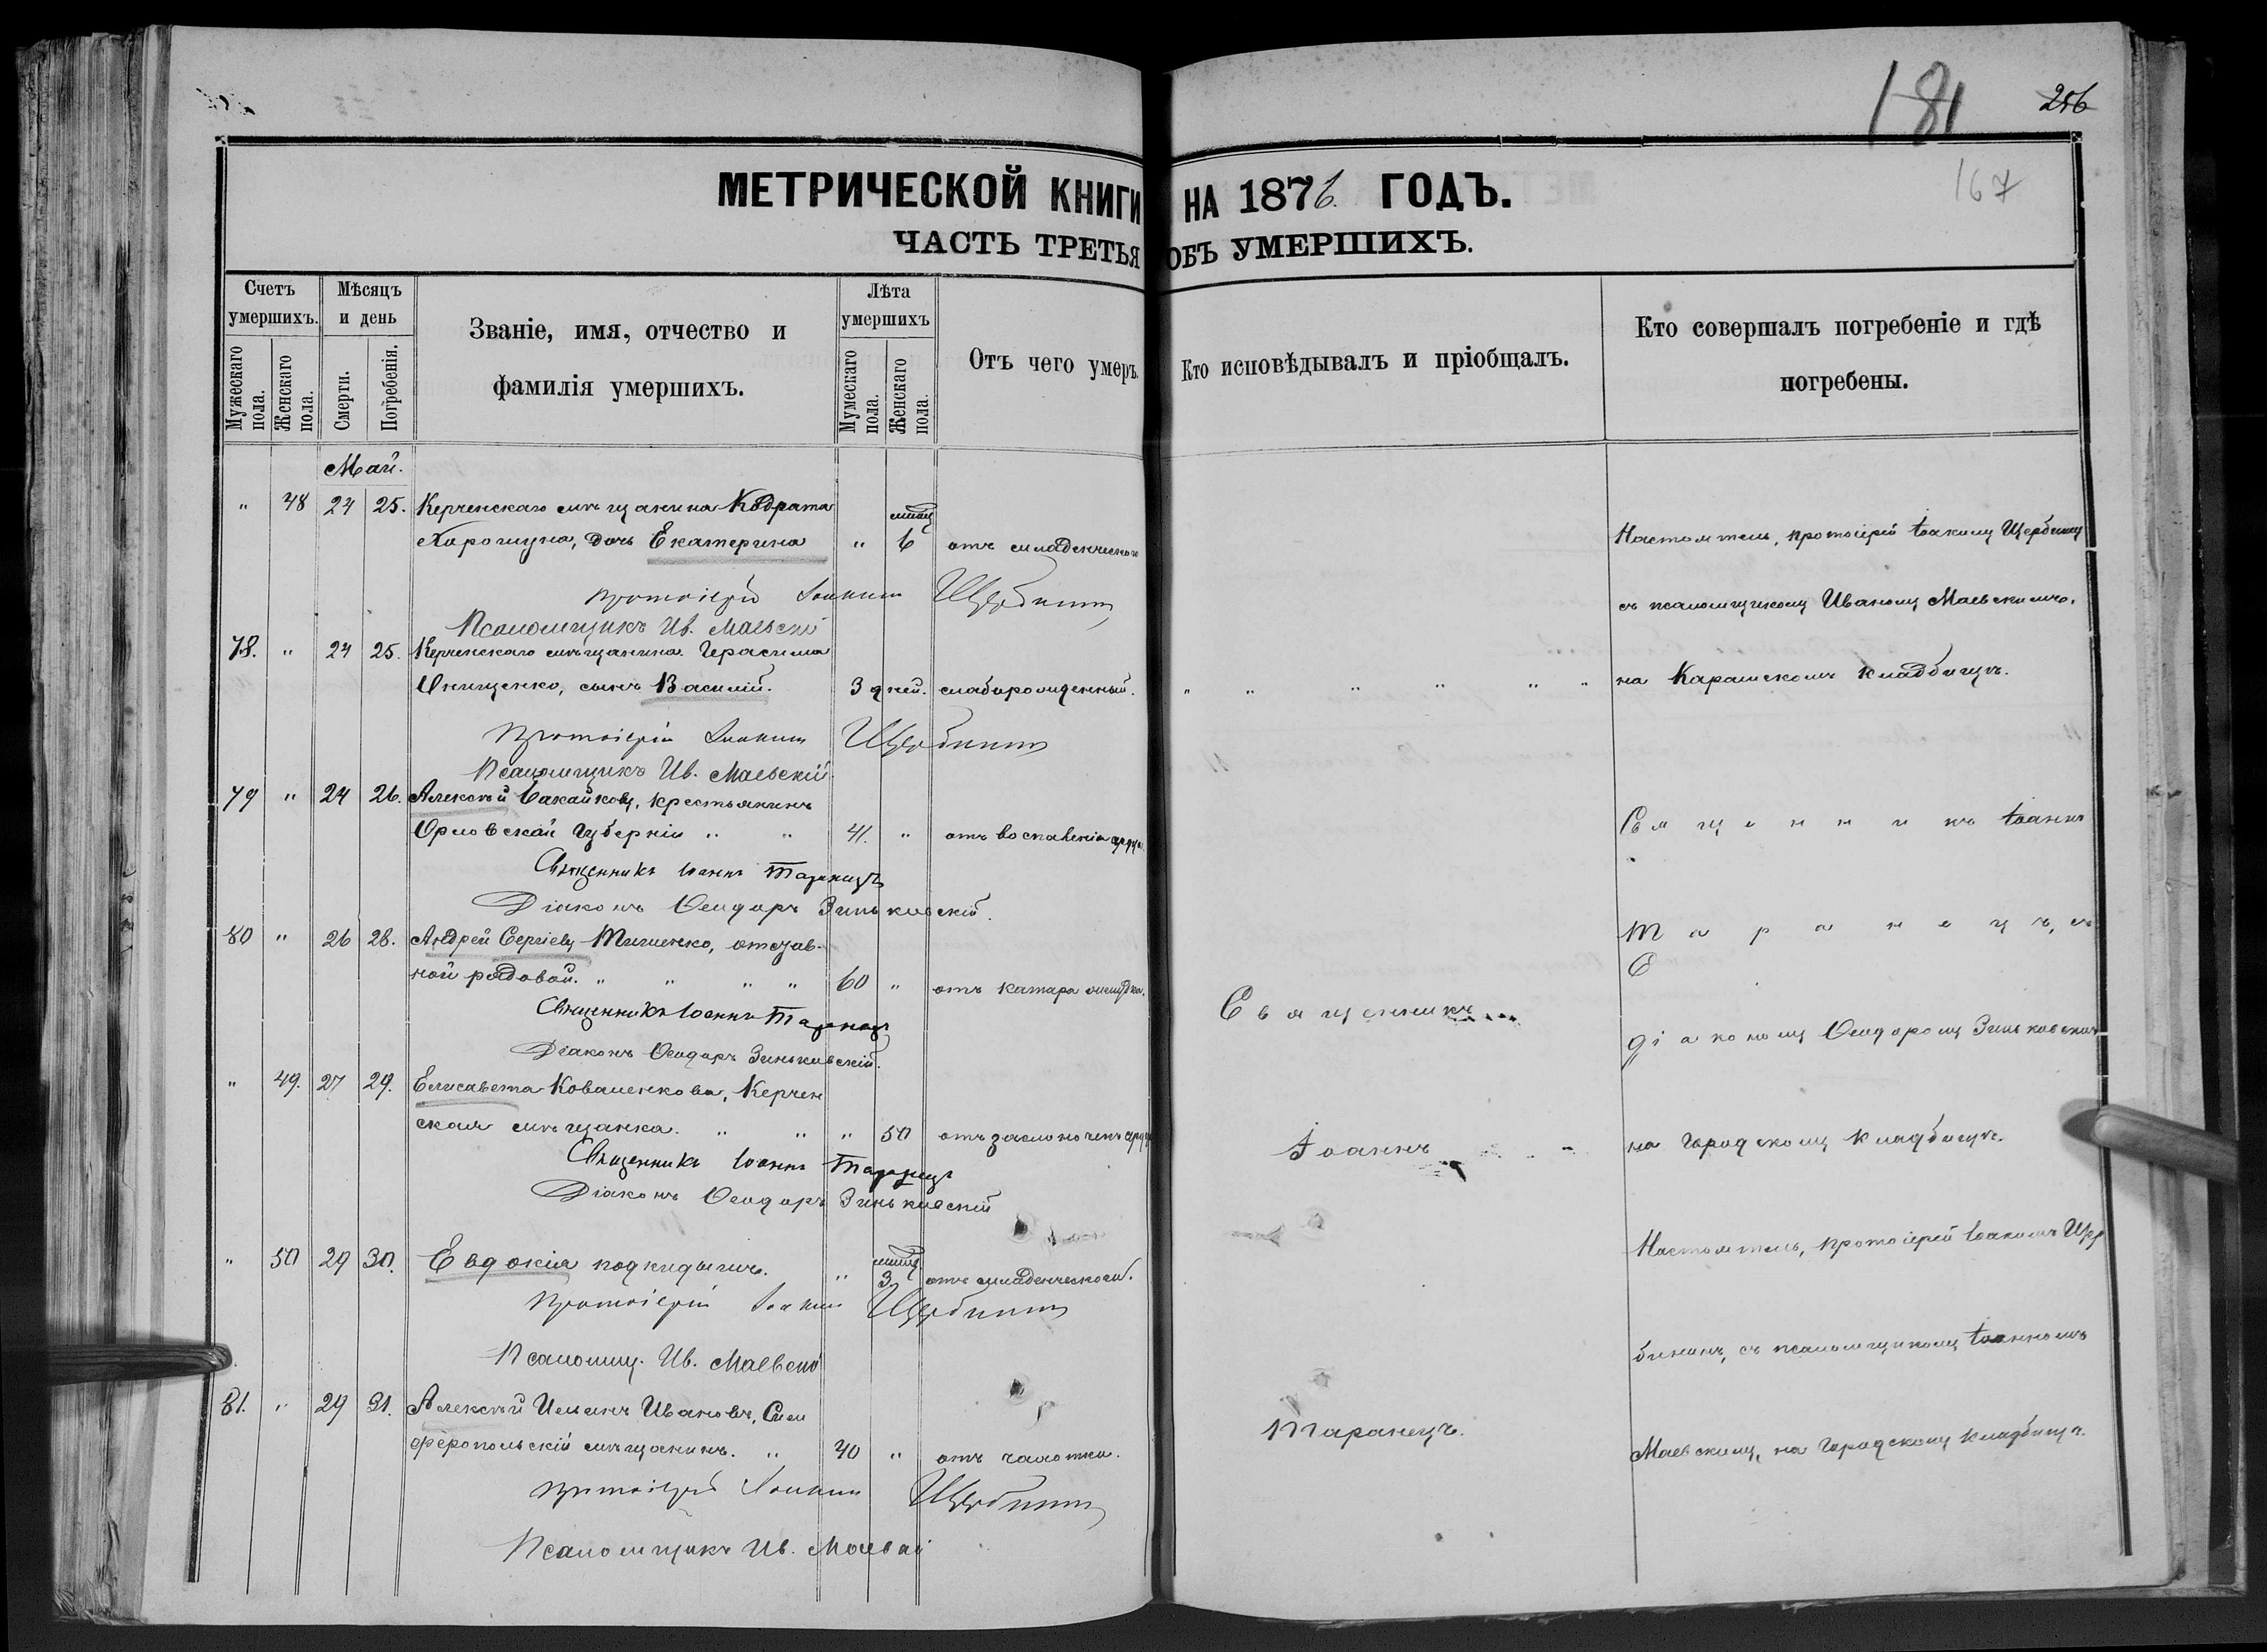 181 256
167
МЕТРИЧЕСКОЙ КНИГИ НА 1876. ГОДЪ.
ЧАСТЬ ТРЕТЬЯ ОБЪ УМЕРШИХЪ.
Счетъ умершихъ.
Мужескаго пола.
Женскаго пола.
Мѣсяцъ и день
Смерти.
Погребенія.
Званіе, имя, отчество и
фамилія умершихъ.
Лѣта умершихъ
Мужескаго пола.
Женскаго пола.
Отъ чего умеръ.
Кто исповѣдывалъ и пріобщалъ.
Кто совершалъ погребеніе и гдѣ
погребены.
Май.
" 48 24 25. Керченскаго мѣщанина Кодрата
дочь Екатерина " 6 отъ младенческаго
Протоіерей Іоакимъ Щербининъ
Псаломщикъ Ив. Маевскій
78. " 24 25. Керченскаго мѣщанина Герасима
Онищенко, сынъ Василій. 3 дней. слаборожденный.
Протоіерей Іоакимъ Щербининъ
Псаломщикъ Ив. Маевскій
79 " 24 26. Алексѣй крестьянинъ
Орловской губерніи " " 41. " отъ воспаленія
Священникъ Іоаннъ Таранецъ
Діаконъ Ѳеодоръ Зиньковскій.
80 " 26 28. Андрей Сергіевъ отстав-
ной рядовой. " " " " 60 " отъ катара желудка.
Священникъ Іоаннъ Таранецъ
Діаконъ Ѳеодоръ Зиньковскій.
" 49. 27 29. Елисавета Коваленкова, Керчен
ская мѣщанка. " " " 50 отъ
Священникъ Іоаннъ Таранецъ
Діаконъ Ѳеодоръ Зиньковскій
" 50 29 30. Евдокія подкидышъ. " 3 отъ младенческой.
Протоіерей Іоакимъ Щербининъ
Псаломщ. Ив. Маевскій
81. " 29 31. Алексѣй Ивановъ, Сим
феропольскій мѣщанинъ. " 40 " отъ чахотки.
Протоіерей Іоакимъ Щербининъ
Псаломщикъ Ив. Маевскій
Священникъ
Іоаннъ
Таранецъ.
Настоятель, протоіерей Іоакимъ Щербининъ
съ псаломщикомъ Иваномъ Маевскимъ,
на Карантинскомъ кладбищѣ.
Священникъ Іоаннъ
Таранецъ, съ
діакономъ Ѳеодоромъ Зиньковскимъ
на городскомъ кладбищѣ.
Настоятель, протоіерей Іоакимъ Щер
бининъ, съ псаломщикомъ Іоанномъ
Маевскимъ, на городскомъ кладбищѣ.